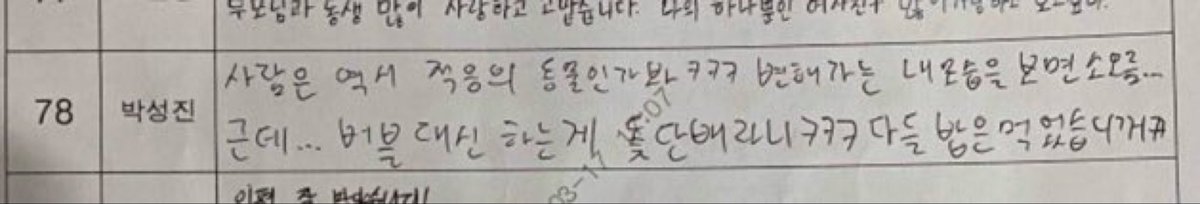 부모님과 동생 많이 사랑하고 고맙습니다. 나의 하나뿐인 여자친구 많이
78 박성진 사람은 역시 적응의 동물인가봐 ㅋㅋㅋ 변해가는 내모습을 보면 소오름...
근데... 버블 대신 하는게 꽃단배라니ㅋㅋㅋ 다들 밥은 먹었습니까#
03-11 07